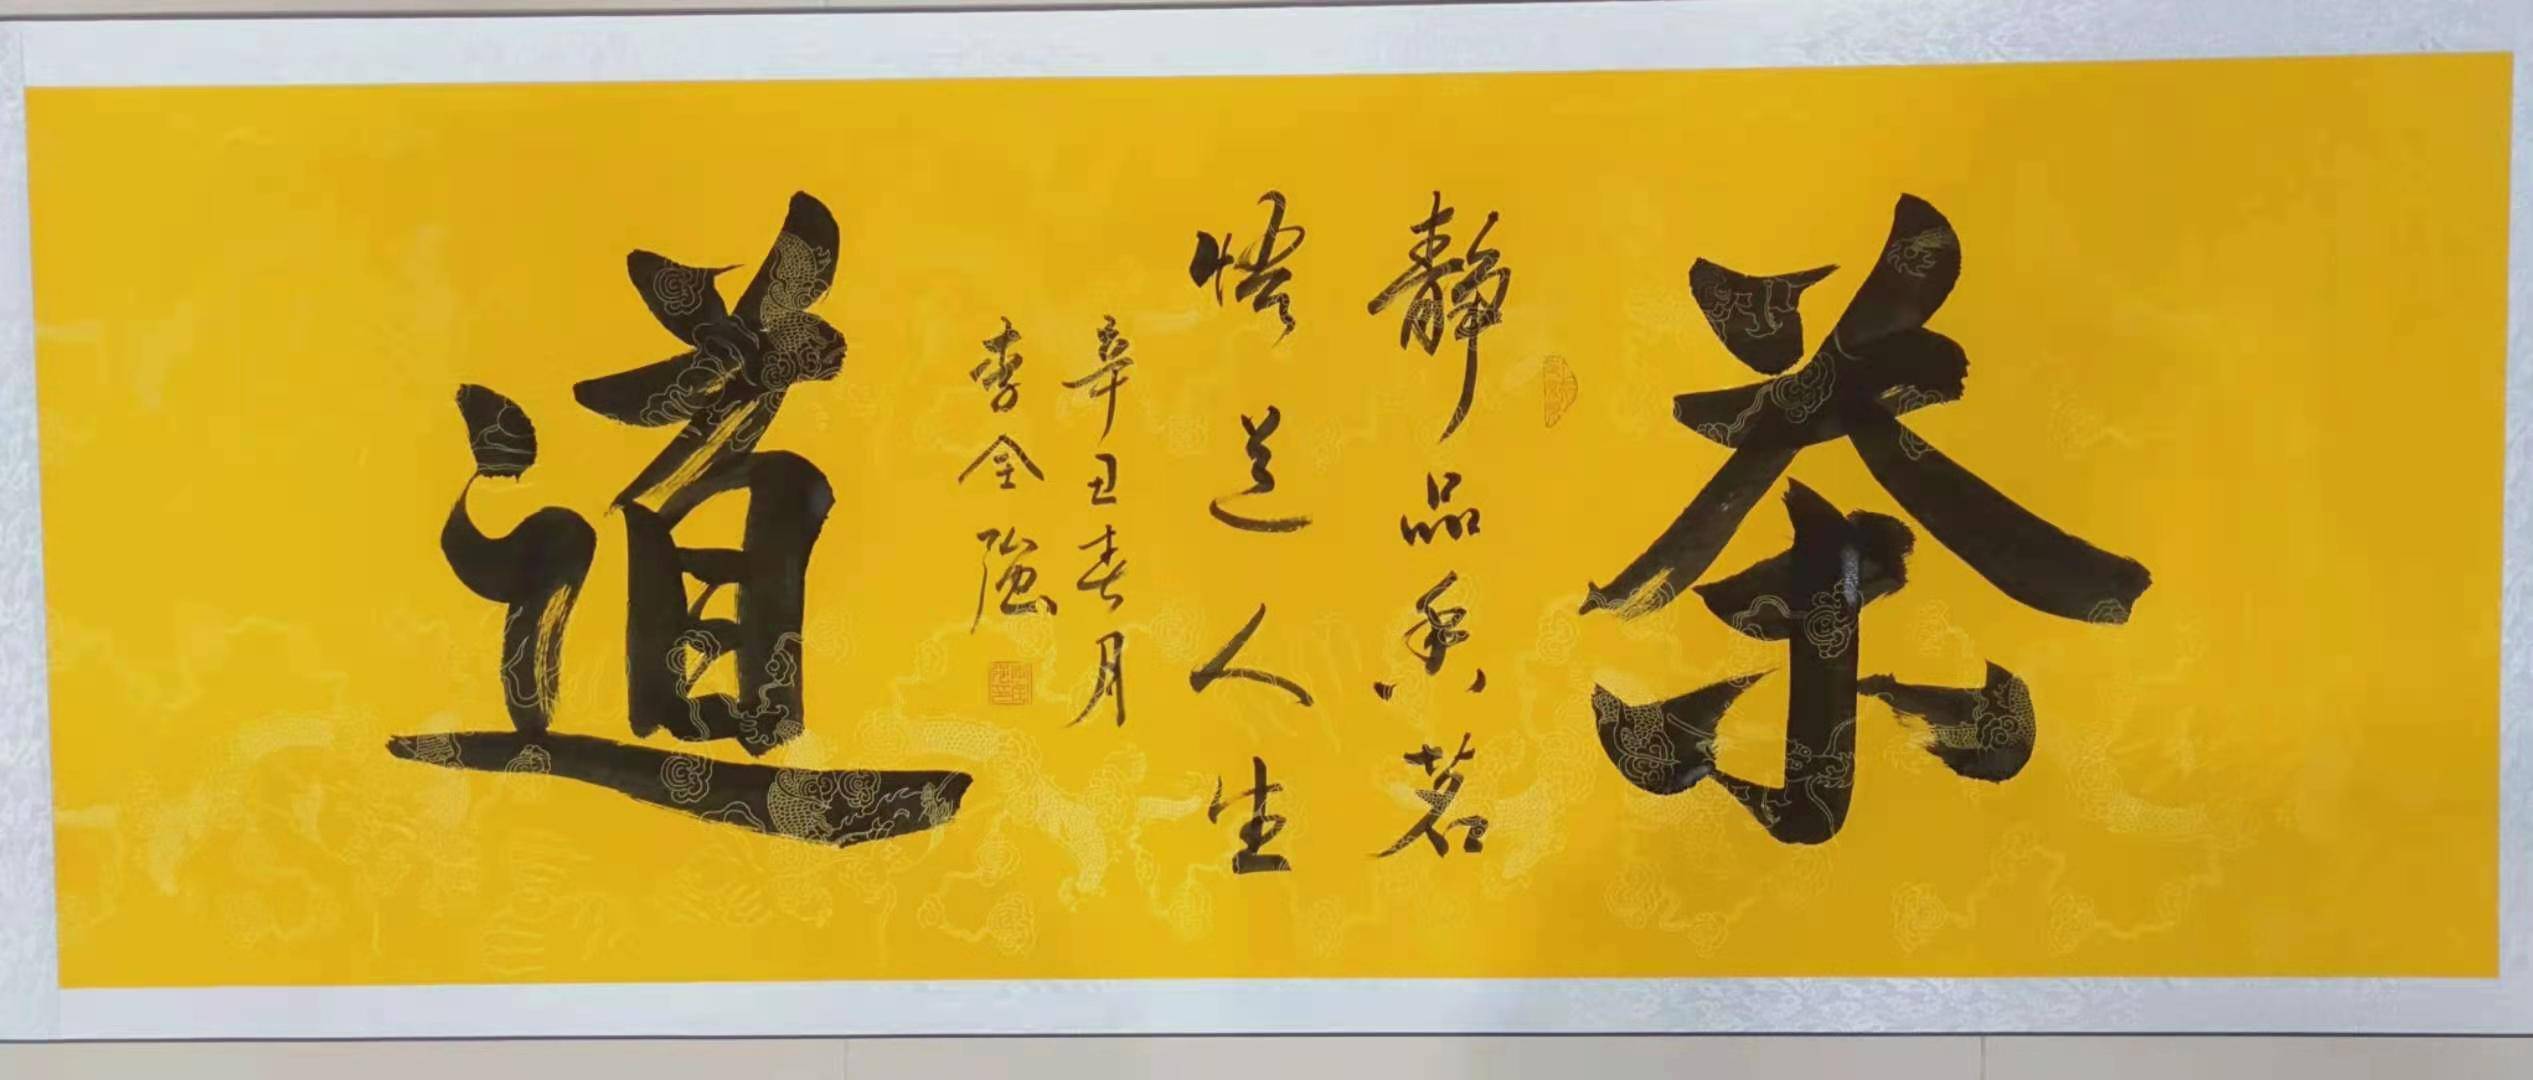 茶
静品香茗
悟道人生
辛丑春月
李全强
道